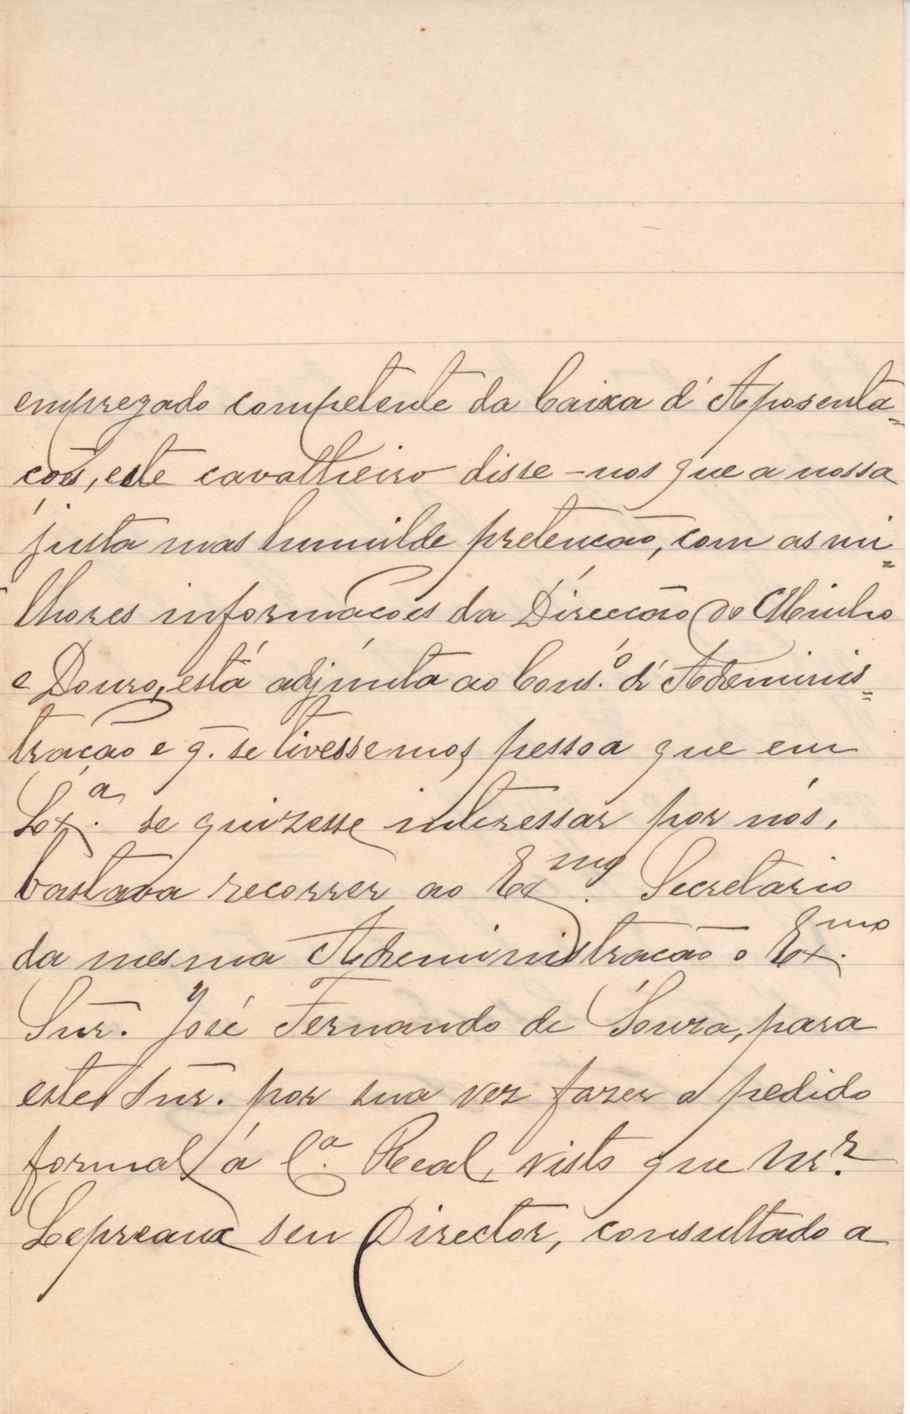 empregado competente da Caixa d'Aposenta=
ções, este cavalheiro disse-nos que a nossa
justa mas humilde pretenção, com as mi=
lhores informações da Direcção do Minho
e Douro, está adjúnta ao Cons.º d'Ademinis=
tração e q. se tivessemos pessoa que em
Lox.ª se quizesse interessar por nós,
bastava recorrer ao Ex.mo Secretario
da mesma Adeministração o Ex.mo
Snr. José Fernando de Souza, para
este Snr. por sua vez fazer o pedido
formal á C.ª Real, visto que Mr.
Lepreaux seu Director, consultado a